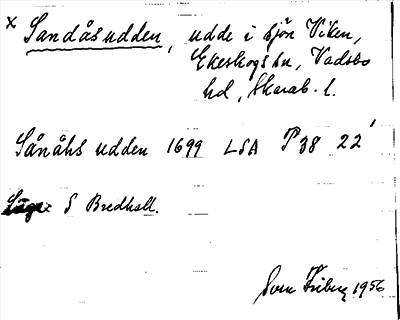 x Sandåsudden, udde i sjön Viken,
Ekeskogs sn, Vadsbo
hd, Skarab. l.
Sånåhs udden 1699 LSA P 38 22'
Läge: S Bredhall.
Sven Friberg 1956